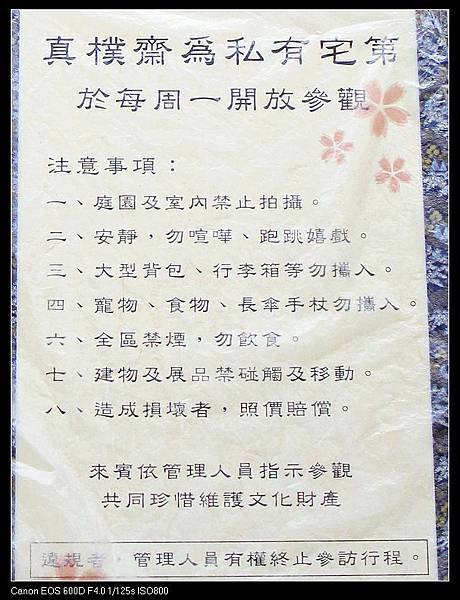 真樸齋為私有宅第
於每周一開放參觀
注意事項：
一、庭園及室內禁止拍攝。
二、安靜，勿喧嘩、跑跳嬉戲。
三、大型背包、行李箱等勿攜入。
四、寵物、食物、長傘手杖勿攜入。
六、全區禁煙，勿飲食。
七、建物及展品禁碰觸及移動。
八、造成損壞者，照價賠償。
來賓依管理人員指示參觀
共同珍惜維護文化財產
違規者，管理人員有權終止參訪行程。
Canon EOS 600D F4.0 1/125s ISO800